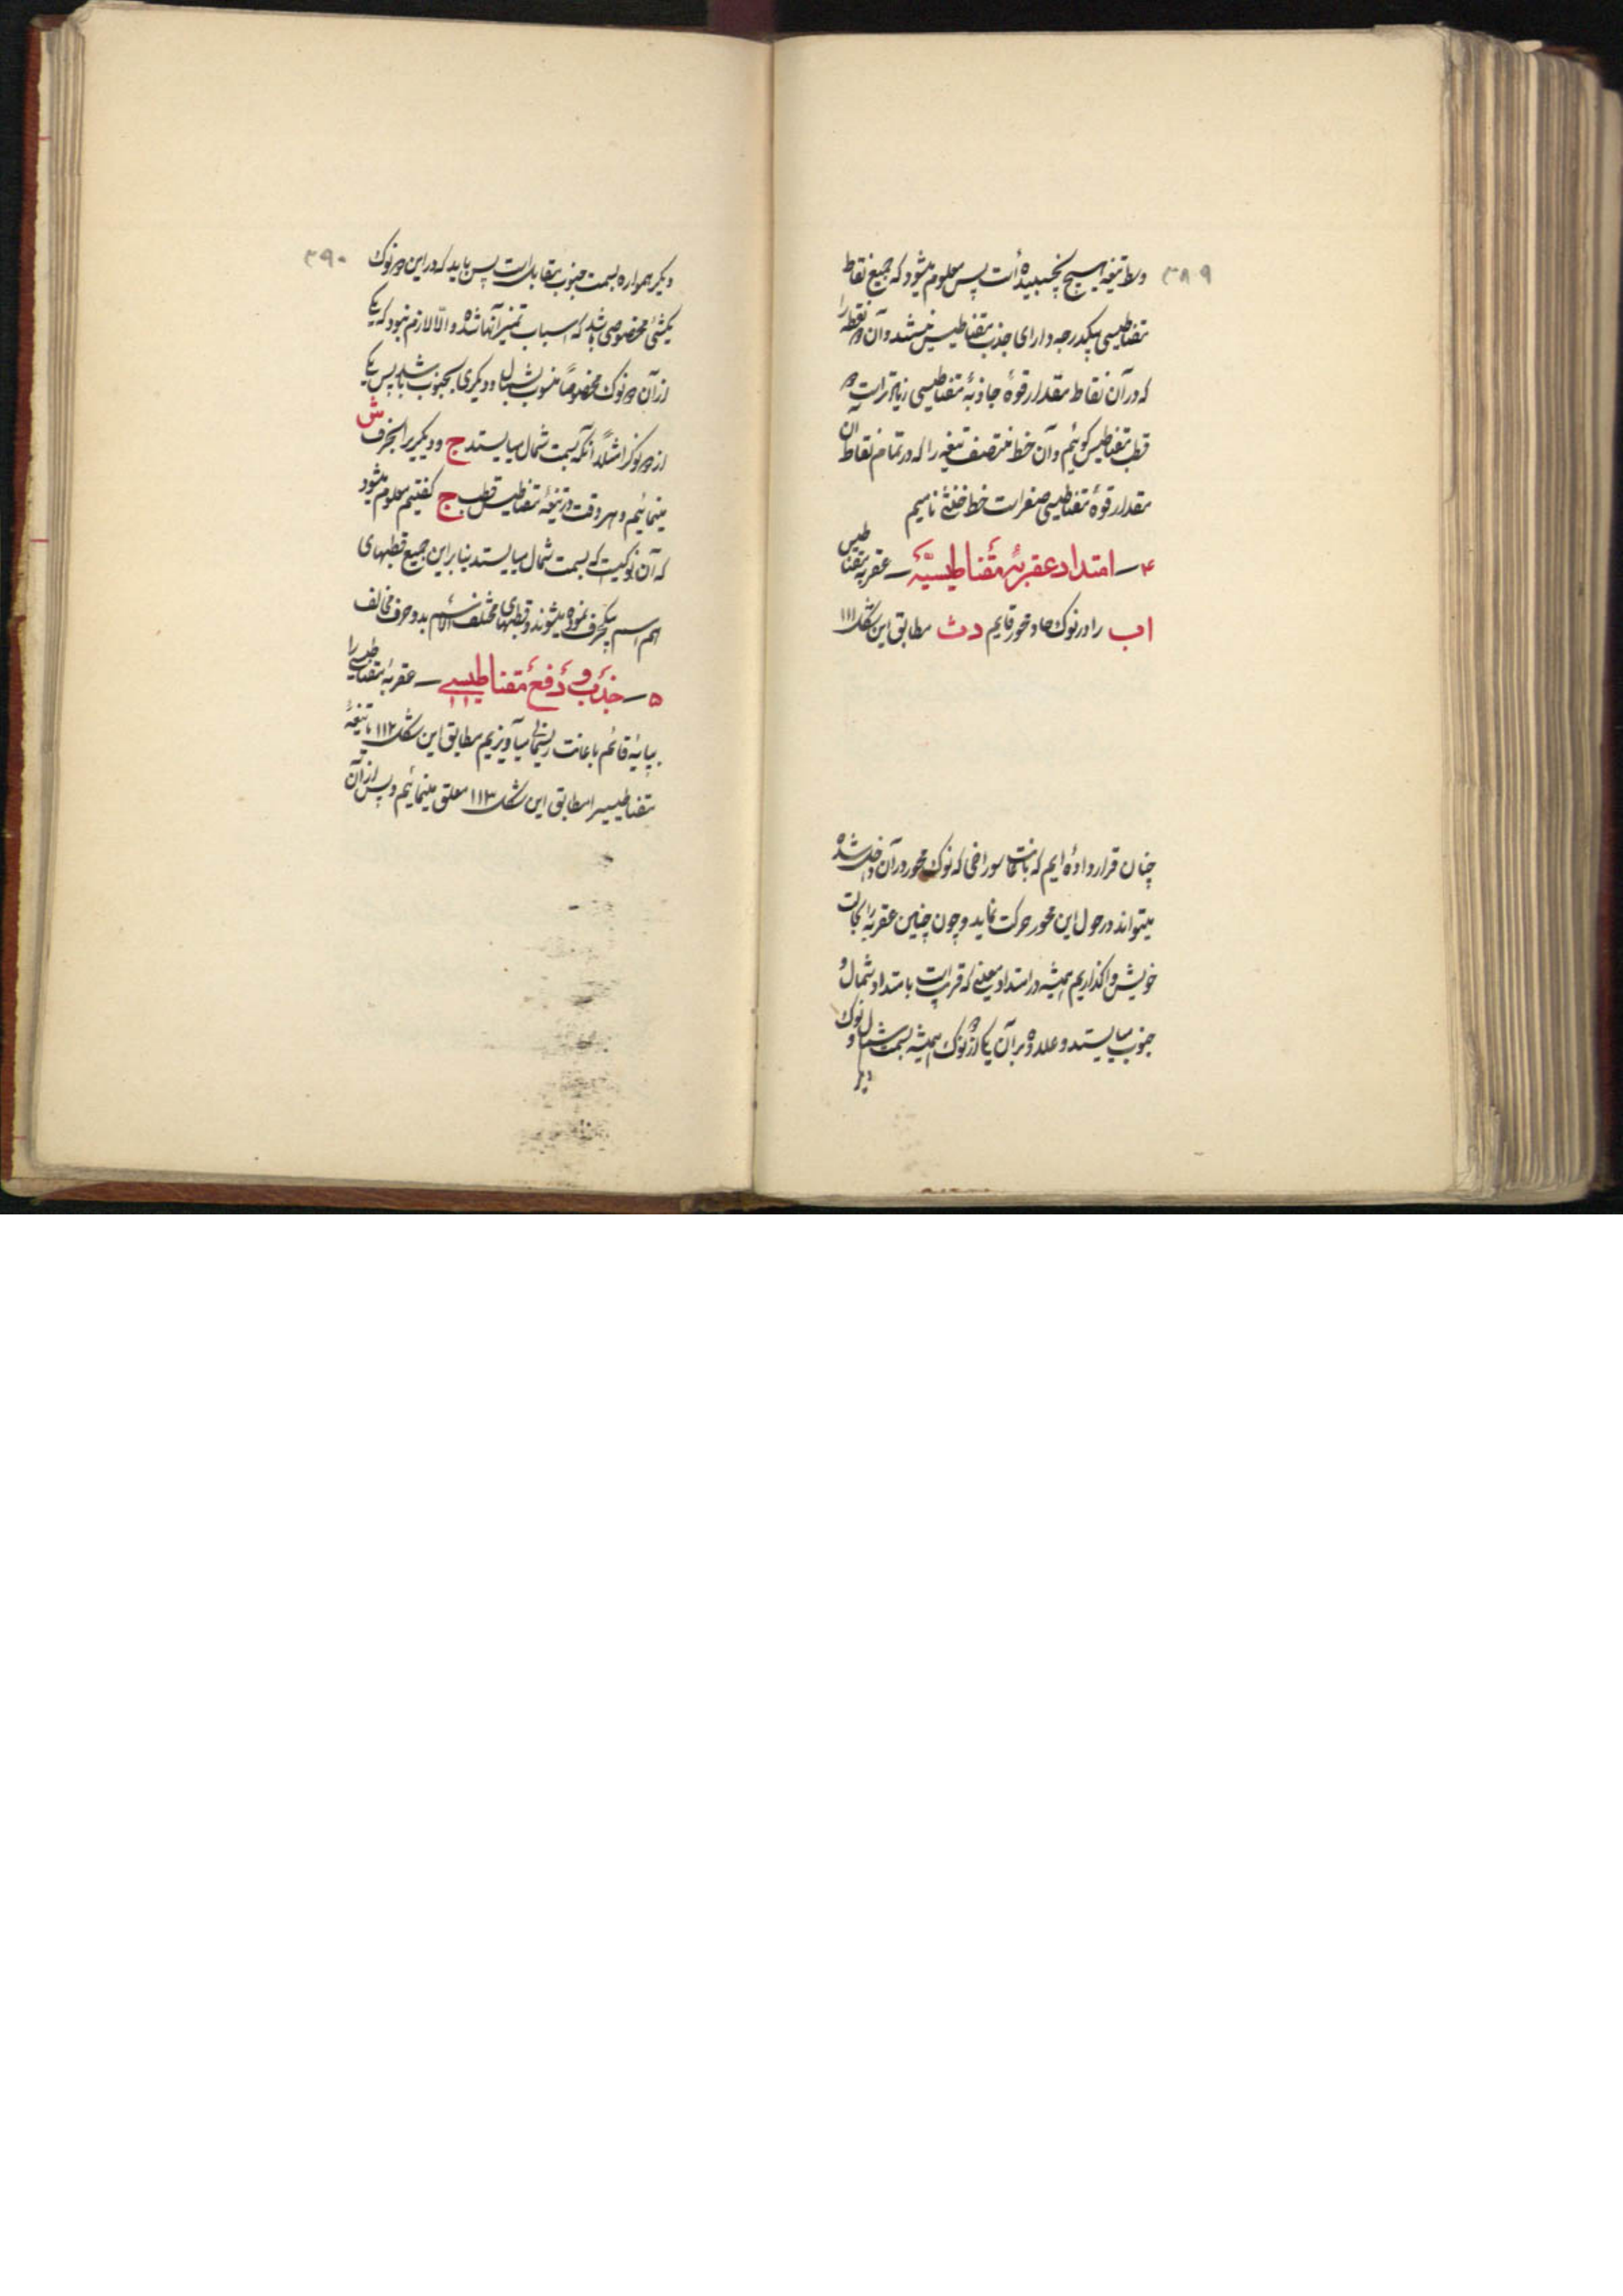 ۳۸۹
وسط تیغه هیچ نچسبیده است پس معلوم میشود که جمیع نقاط
مقناطیسی بیکدرجه دارای جذب مقناطیس نیستند و آن دو نقطه را
که در آن نقاط مقدار قوهٔ جاذبهٔ مقناطیسی زیادتر است دو
قطب مقناطیس گوئیم و آن خط منتصف تیغه را که در تمام نقاط آن
مقدار قوهٔ مقناطیسی صفر است خط خنثی نامیم
۴ــ امتداد عقربهٔ مقناطیسیّه ــ عقربهٔ مقناطیس
اب را در نوک حاد محور قایم دث مطابق این شکل ۱۱۱
چنان قرار داده ایم که باعانت سوراخی که نوک محور در آن داخل شده
میتواند در حول این محور حرکت نماید و چون چنین عقربه را بحالت
خویش واگذاریم همیشه در امتداد معینی که قریب است بامتداد شمال و
جنوب میایستد و علاوه بر آن یکی از دو نوک همیشه بسمت شمال و نوک
دیگر
۳۹۰
دیگر همواره بسمت جنوب مقابل است پس باید که در این دو نوک
یکشئ مخصوصی باشد که اسباب تمیز آنها شده و الّا لازم نبود که یکی
از آن دو نوک مخصوصاً منسوب بشمال و دیگری بجنوب باشد پس یکی
از دو نوک را مثلاً آنکه بسمت شمال میایستد ج و دیگریرا بحرف ش
مینمائیم و هر وقت در تیغهٔ مقناطیس قطب ج گفتیم معلوم میشود
که آن نوکیست که بسمت شمال میایستد بنابراین جمیع قطبهای
هم اسم بیکحرف نموده میشوند و قطبهای مختلف الاسم بدو حرف مخالف
۵ــ جذب و دفع مقناطیسی ــ عقربهٔ مقناطیسی را
بپایهٔ قائم باعانت ریسمانی میآویزیم مطابق این شکل ۱۱۲ یا تیغهٔ
مقناطیسیرا مطابق این شکل ۱۱۳ معلق مینمائیم و پس از آن